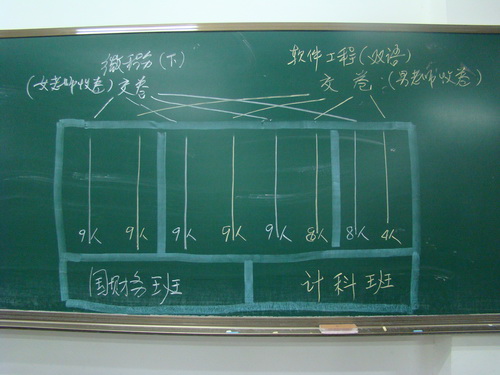 微积分(下)
(女老师收卷)交卷
软件工程(双语)
交卷:(男老师收卷)
9人 9人 9人 9人 9人 8人 8人 4人
国财务班
计科班